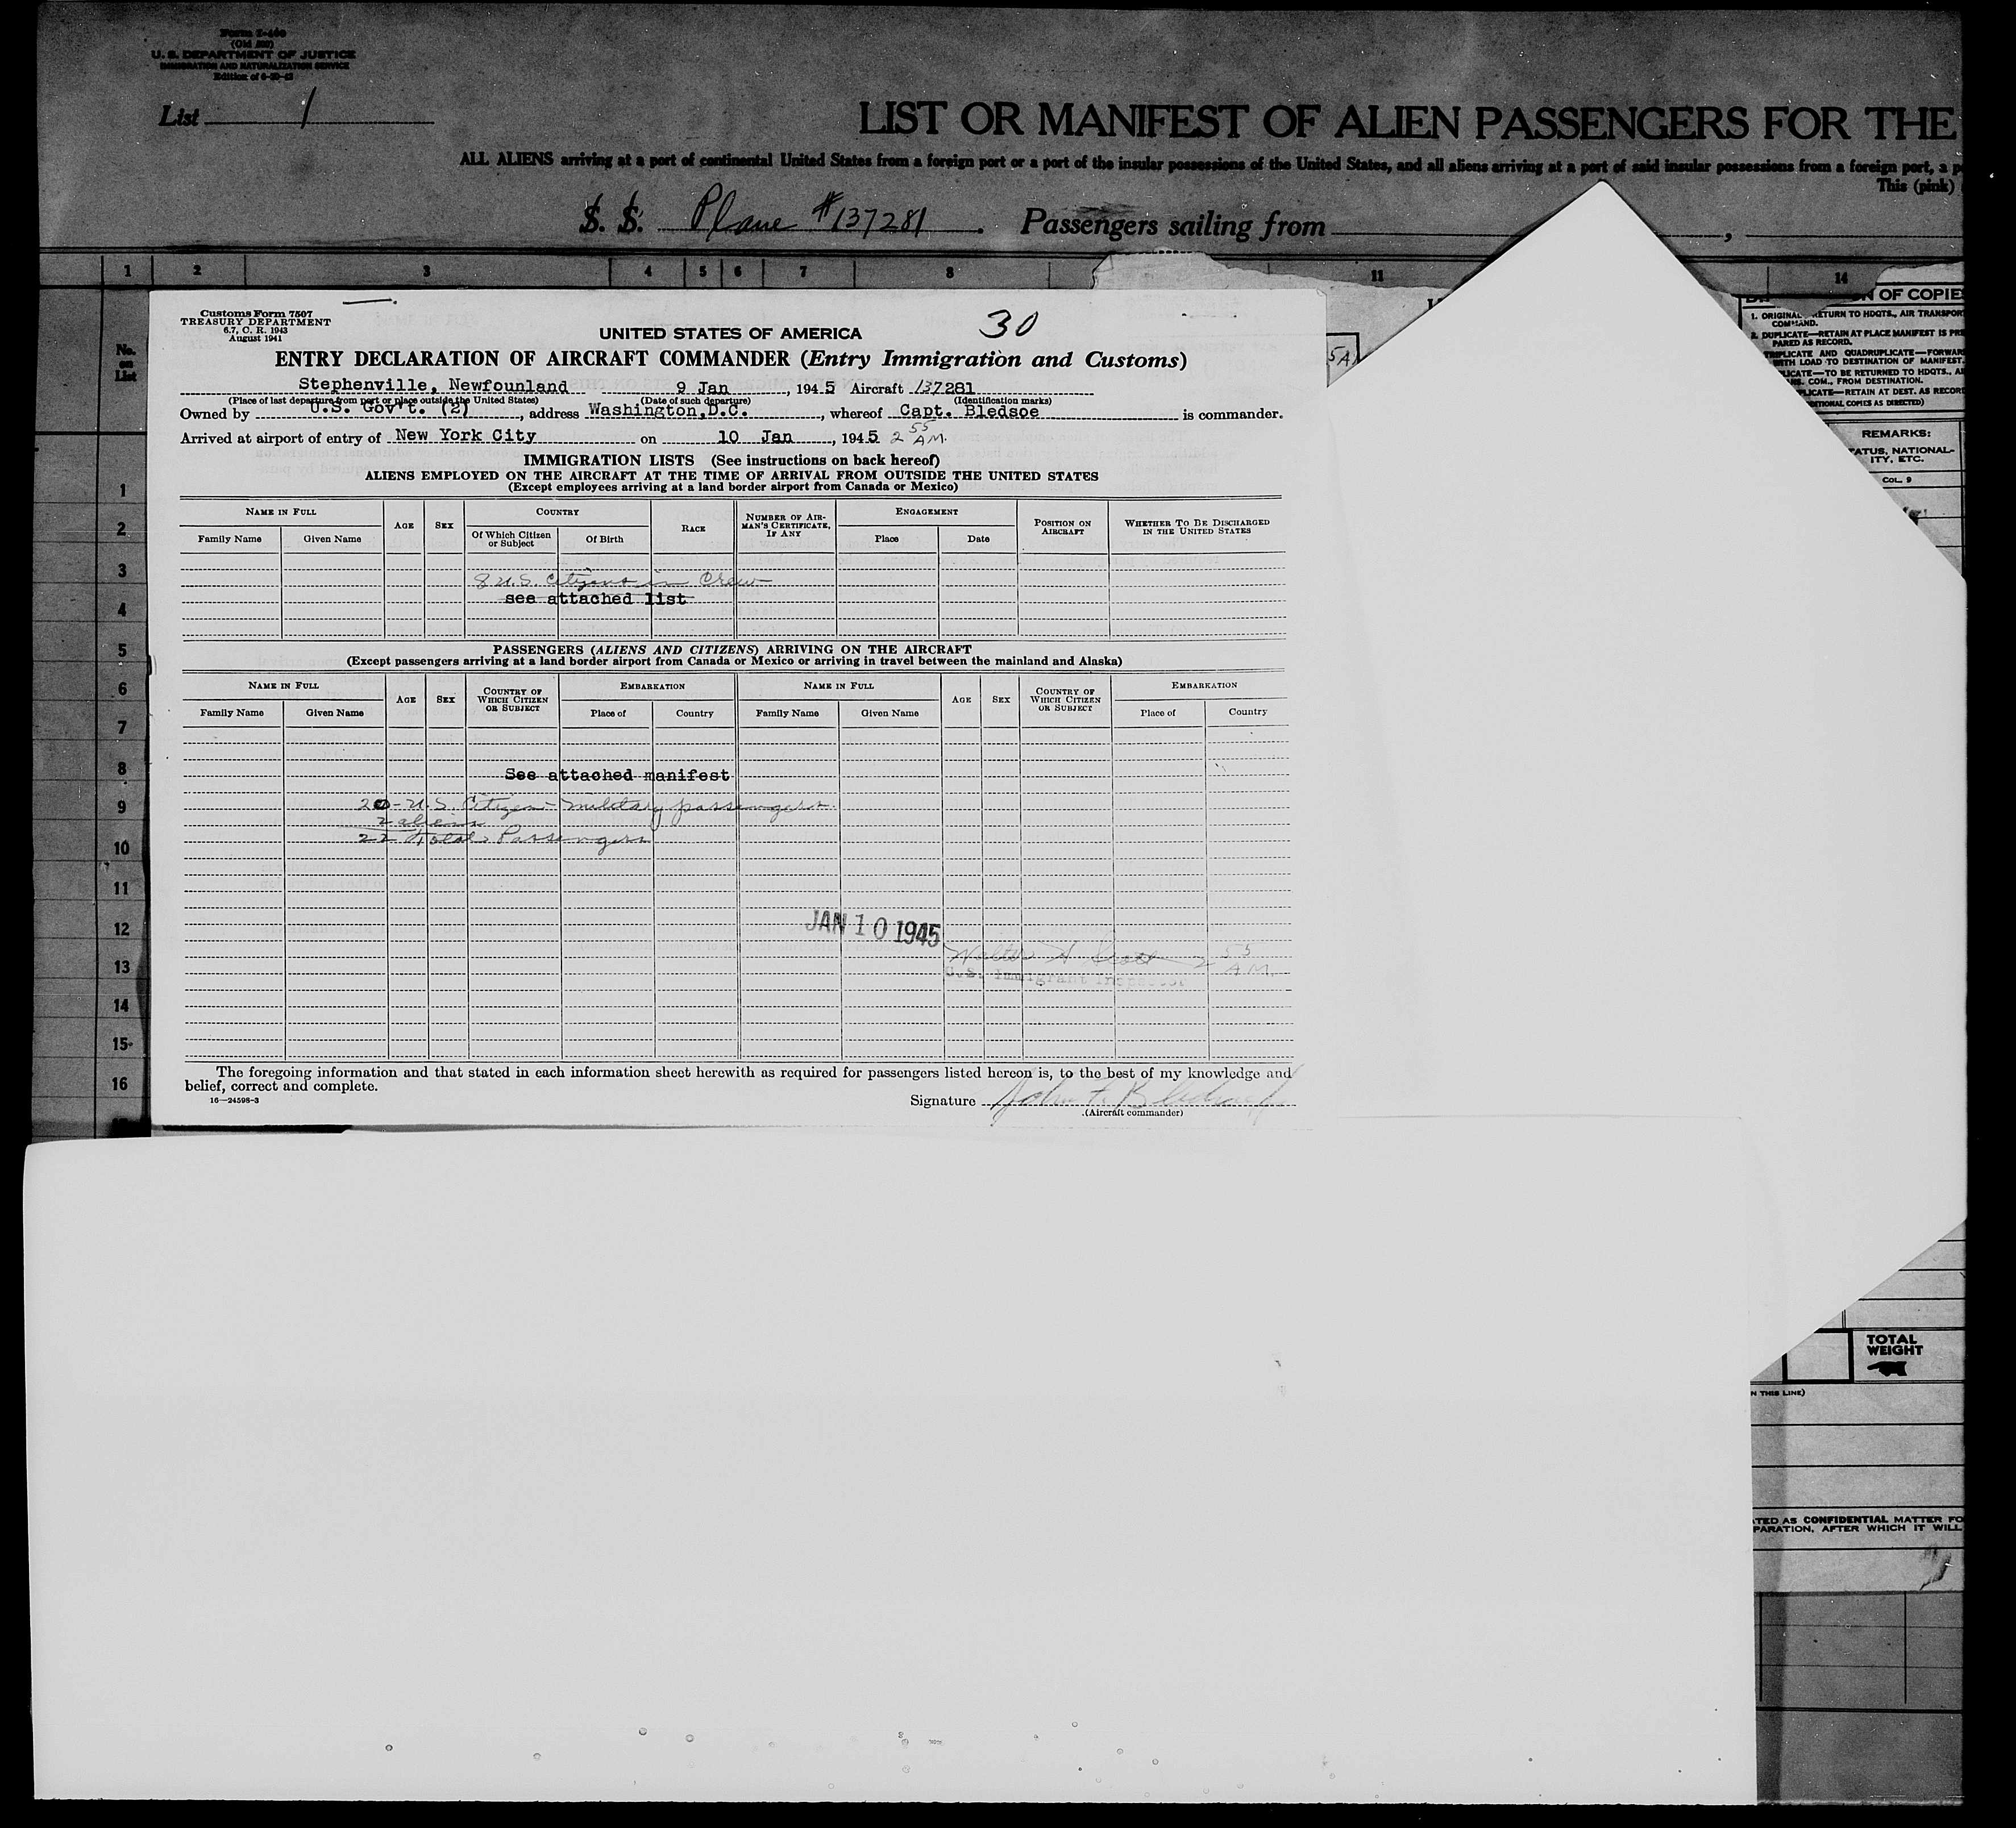 Form I-460
(Old 500)
U. S. DEPARTMENT OF JUSTICE
IMMIGRATION AND NATURALIZATION SERVICE
List 1
LIST OR MANIFEST OF ALIEN PASSENGERS FOR THE
ALL ALIENS arriving at a port of continental United States from a foreign port or a port of the insular possessions of the United States, and all aliens arriving at a port of said insular possessions from a foreign port, a p
This (pink)
S. S. Plane #137281. Passengers sailing from ,
1 2 3 4 5 6 7 8 11 14
No. on List
Customs Form 7507
TREASURY DEPARTMENT
6.7, C. R. 1943
August 1941
30
UNITED STATES OF AMERICA
ENTRY DECLARATION OF AIRCRAFT COMMANDER (Entry Immigration and Customs)
Stephenville, Newfounland 9 Jan, 1945 Aircraft 137281
(Place of last departure from port or place outside the United States) (Date of such departure) (Identification marks)
Owned by U.S. Gov't. (2), address Washington,D.C., whereof Capt. Bledsoe is commander.
Arrived at airport of entry of New York City on 10 Jan, 1945 2 55 AM.
IMMIGRATION LISTS (See instructions on back hereof)
ALIENS EMPLOYED ON THE AIRCRAFT AT THE TIME OF ARRIVAL FROM OUTSIDE THE UNITED STATES
(Except employees arriving at a land border airport from Canada or Mexico)
NAME IN FULL AGE SEX COUNTRY RACE NUMBER OF AIRMAN'S CERTIFICATE, IF ANY ENGAGEMENT POSITION ON AIRCRAFT WHETHER TO BE DISCHARGED IN THE UNITED STATES
Family Name Given Name Of Which Citizen or Subject Of Birth Place Date
8 U.S. Citizens in Crew
see attached list
PASSENGERS (ALIENS AND CITIZENS) ARRIVING ON THE AIRCRAFT
(Except passengers arriving at a land border airport from Canada or Mexico or arriving in travel between the mainland and Alaska)
NAME IN FULL AGE SEX COUNTRY OF WHICH CITIZEN OR SUBJECT EMBARKATION NAME IN FULL AGE SEX COUNTRY OF WHICH CITIZEN OR SUBJECT EMBARKATION
Family Name Given Name Place of Country Family Name Given Name Place of Country
See attached manifest
20 - U.S. Citizen - military passengers
2 aliens
22 Total Passengers
JAN 10 1945
Walter A Scott 2 55 AM.
U.S. Immigrant Inspector
The foregoing information and that stated in each information sheet herewith as required for passengers listed hereon is, to the best of my knowledge and
belief, correct and complete.
16—24598-3
Signature John F. Bledsoe
(Aircraft commander)
1
2
3
4
5
6
7
8
9
10
11
12
13
14
15
16
5A
N OF COPIE
1. ORIGINAL RETURN TO HDQTS., AIR TRANSPOR
COMMAND.
2. DUPLICATE—RETAIN AT PLACE MANIFEST IS PRE
PARED AS RECORD.
TRIPLICATE AND QUADRUPLICATE—FORWAR
WITH LOAD TO DESTINATION OF MANIFEST.
LICATE—TO BE RETURNED TO HDQTS., AI
NS. COM., FROM DESTINATION.
PLICATE—RETAIN AT DEST. AS RECORD
DITIONAL COPIES AS DIRECTED)
REMARKS:
TATUS, NATIONAL-
ITY, ETC.
COL. 9
TOTAL
WEIGHT
N THIS LINE)
TED AS CONFIDENTIAL MATTER FO
PARATION, AFTER WHICH IT WILL